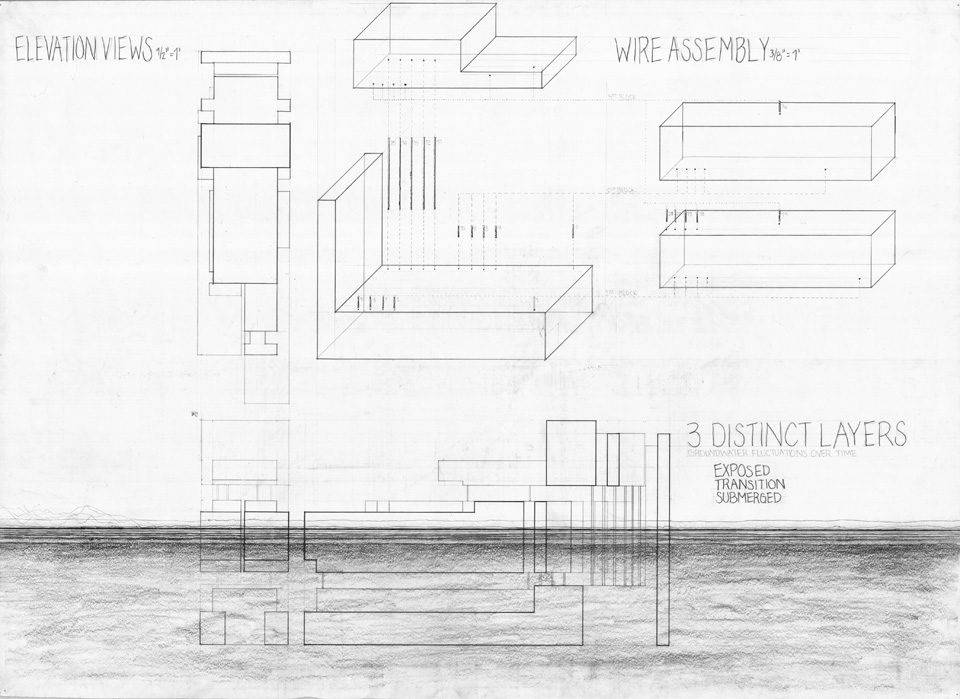 ELEVATION VIEWS 1/2"=1'
WIRE ASSEMBLY 3/8"=1'
3 DISTINCT LAYERS
GROUNDWATER FLUCTUATIONS OVER TIME
EXPOSED
TRANSITION
SUBMERGED